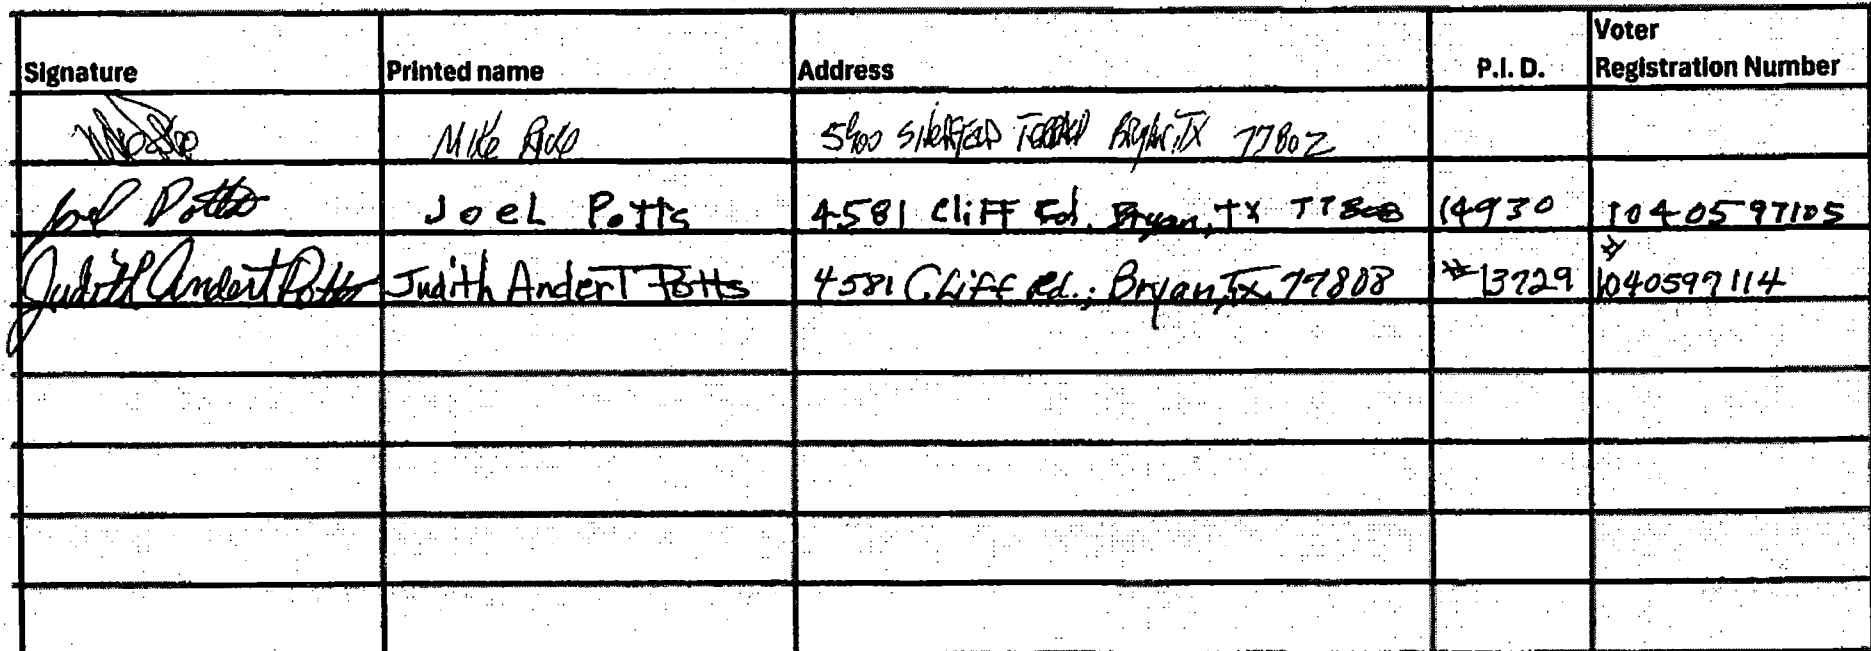 Signature Printed name Address P.I.D. Voter Registration Number
Mike 77802
Joel Potts JoeL Potts 4581 CLiFF Rd, Bryan, TX 77808 14930 1040597105
Judith Andert Potts Judith AnderT Potts 4581 CLiff Rd.; Bryan, Tx. 77808 #13729 #1040597114